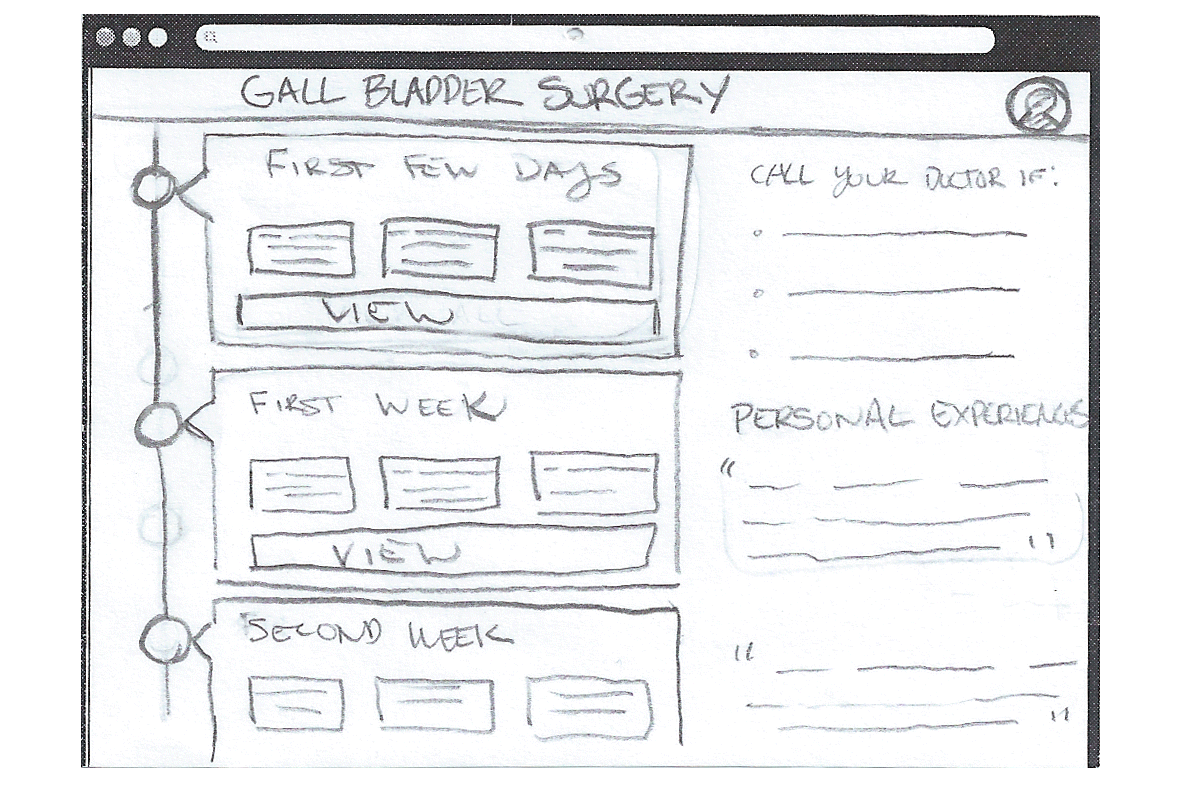 GALL BLADDER SURGERY
FIRST FEW DAYS
VIEW
FIRST WEEK
VIEW
SECOND WEEK
CALL YOUR DOCTOR IF:
PERSONAL EXPERIENCES
"
"
"
"